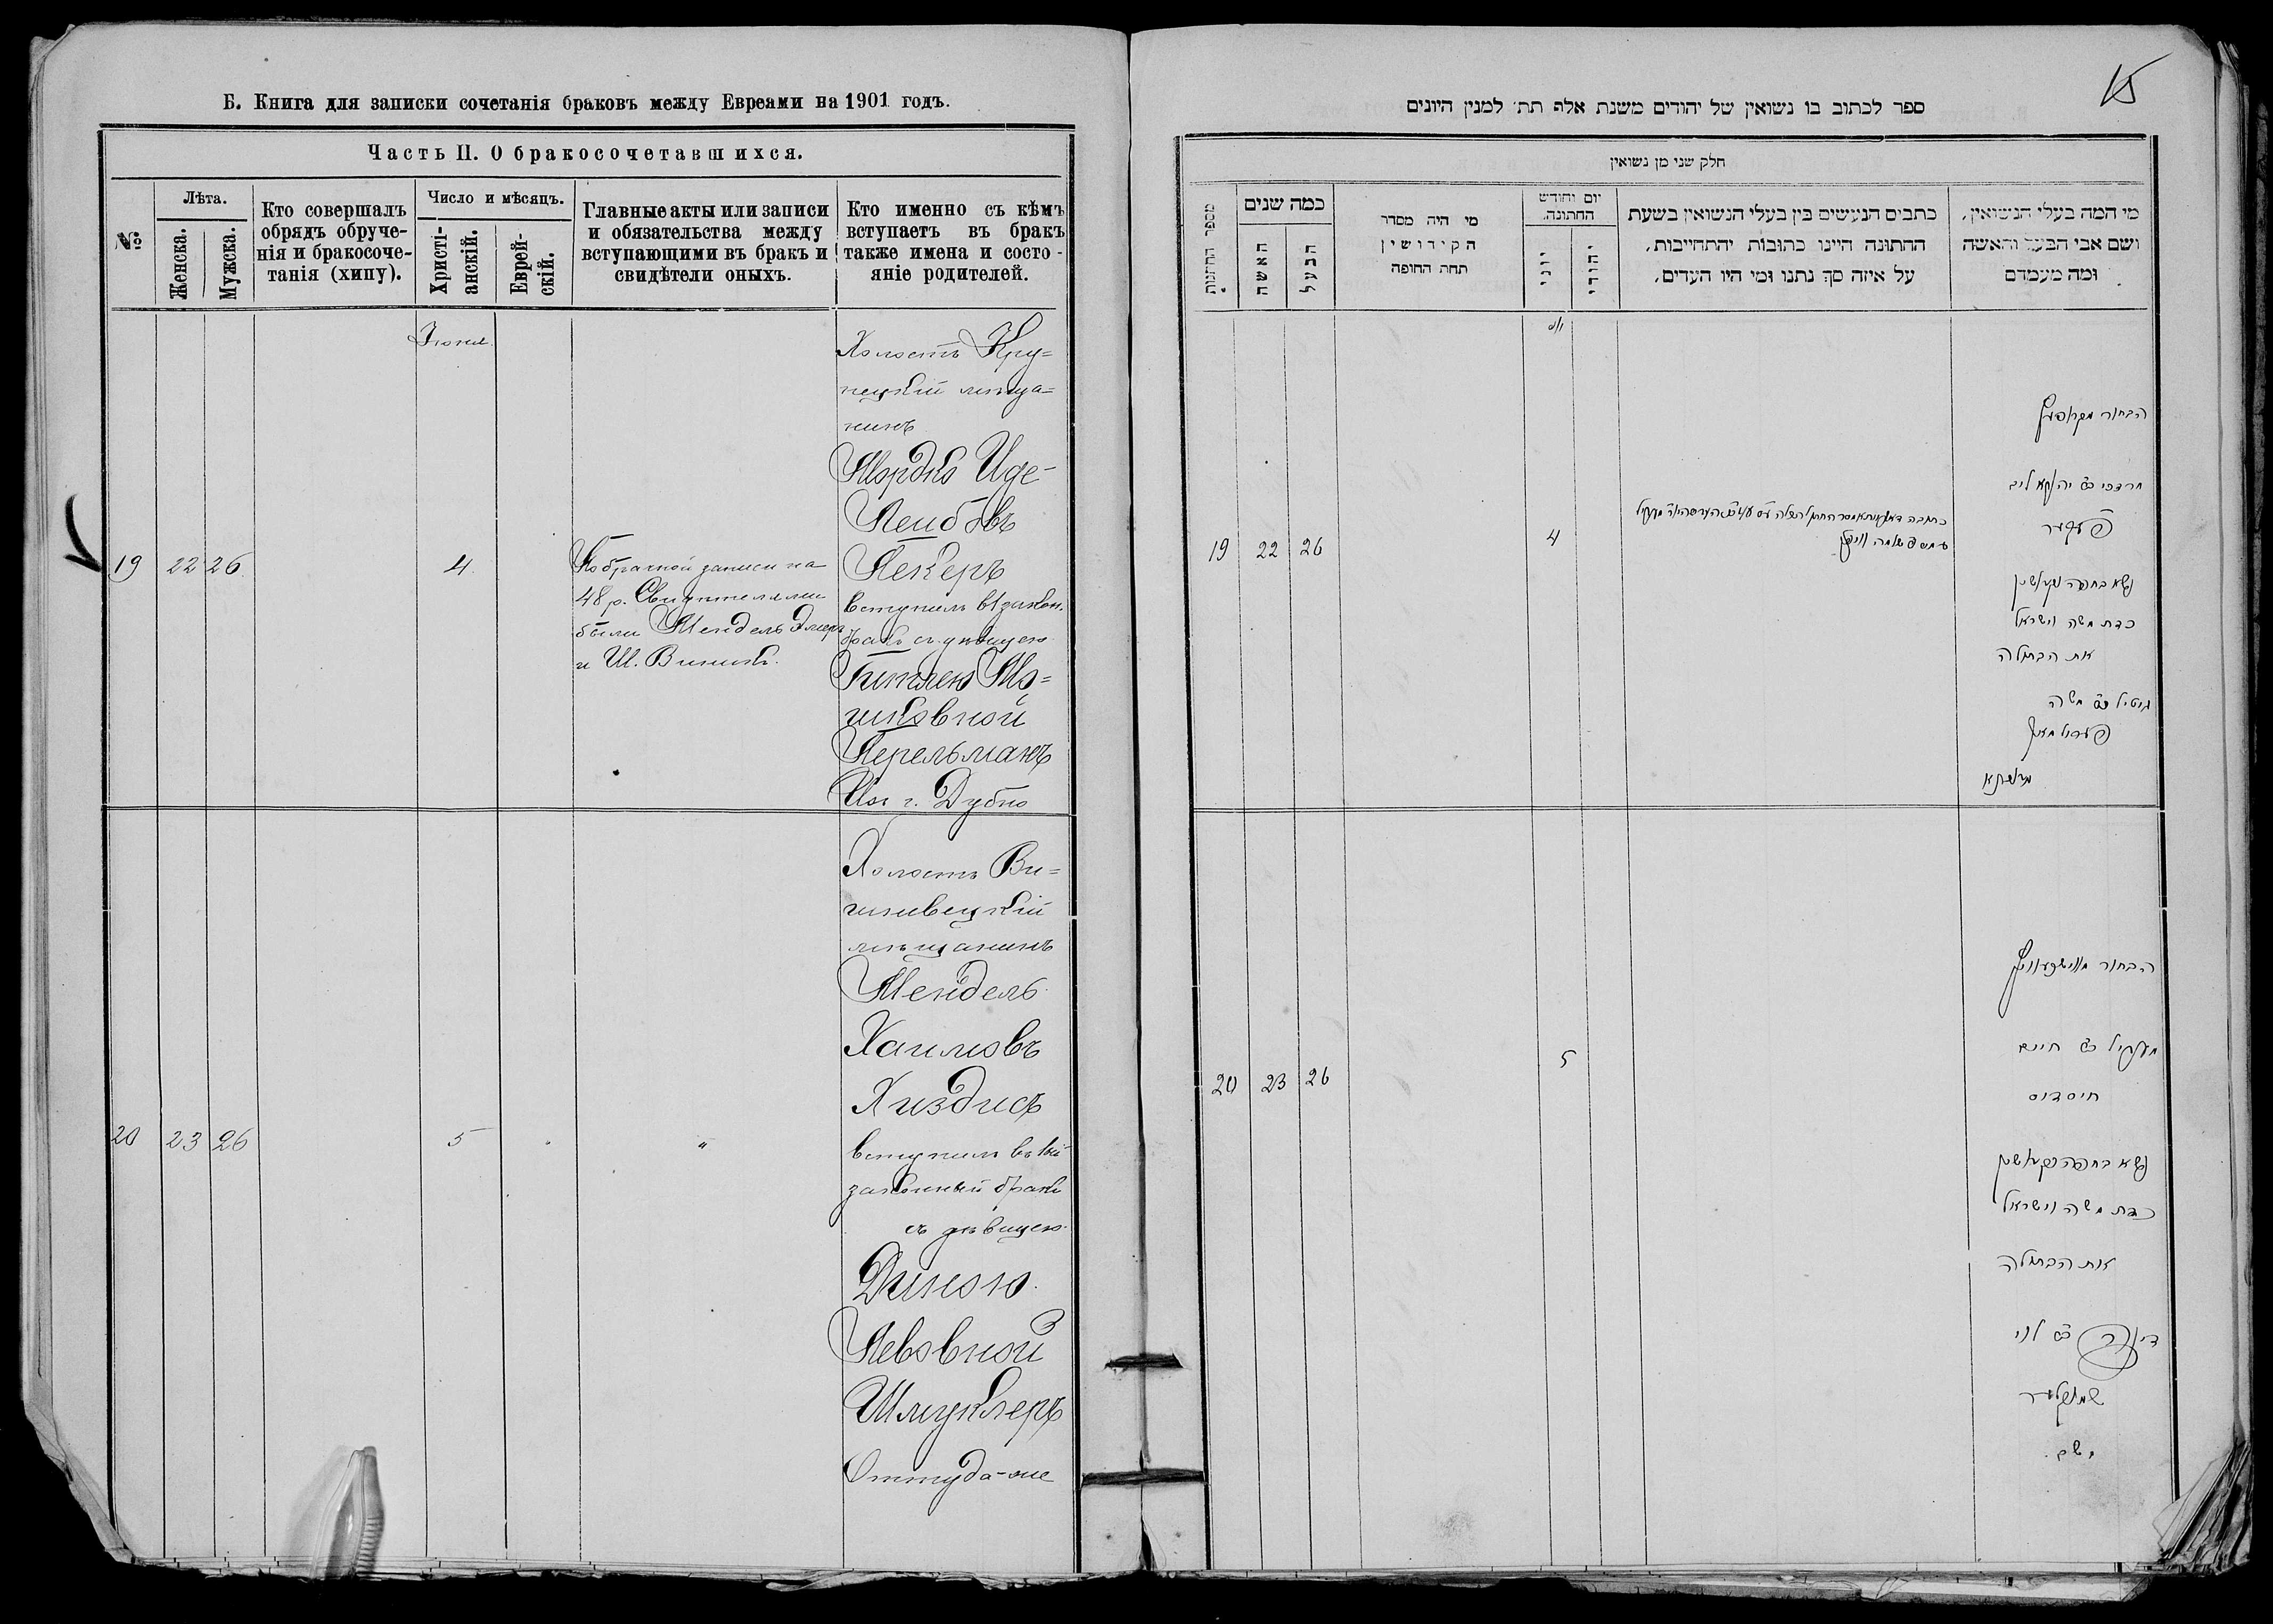 Б. Книга для записки сочетанія браковъ между Евреями на 1901 годъ.
Часть II. О бракосочетавшихся.
№
Лѣта.
Женска.
Мужска.
Кто совершалъ
обрядъ обруче-
нія и бракосоче-
танія (хипу).
Число и мѣсяцъ.
Христі-
анскій.
Еврей-
скій.
Главные акты или записи
и обязательства между
вступающими въ бракъ и
свидѣтели оныхъ.
Кто именно съ кѣмъ
вступаетъ въ бракъ
также имена и состо-
яніе родителей.
19
22
26
4
По брачной записи на
48 р. Свидѣтелями
были Мендель
и Ш.
Холостъ
мѣща=
нинъ
Мордко
Лейбовъ
Пекеръ
вступилъ въ 1 закон.
бракъ съ дѣвицею
Гитлею Мо=
шковной
Перельманъ
Изъ г. Дубно
20
23
26
5
"
Холостъ Ви=
шневецкій
мѣщанинъ
Мендель
Хаимовъ
Хиздисъ
вступилъ въ 1й
законный бракъ
съ дѣвицею
Диною
Левовной
Шмуклеръ
Оттуда-же
15
ספר לכתוב בו נשואין של יהודים משנת אלף תת׳ למנין היונים
חלק שני מן נשואין
מספר החתונות
כמה שנים
האשה
הבעל
מי היה מסדר
הקידושין
תחת החופה
יום וחודש
החתונה.
יוני
יהודי
כתבים הנעשים בין בעלי הנשואין בשעת
החתונה היינו כתובות יהתחייבות,
על איזה סך נתנו ומי היו העדים,
מי המה בעלי הנשואין,
ושם אבי הבעל והאשה
ומה מעמדם
19
22
26
4
הבחור
מרדכי
פעקער
נשא בחופה וקדושין
כדת משה וישראל
את הבתולה
גיטיל בת משה
פערילמאן
20
23
26
5
הבחור
מענדיל בן חיים
חיסדיס
נשא בחופה וקדושין
כדת משה וישראל
את הבתולה
דינה בת לוי
שמוקלער
משם